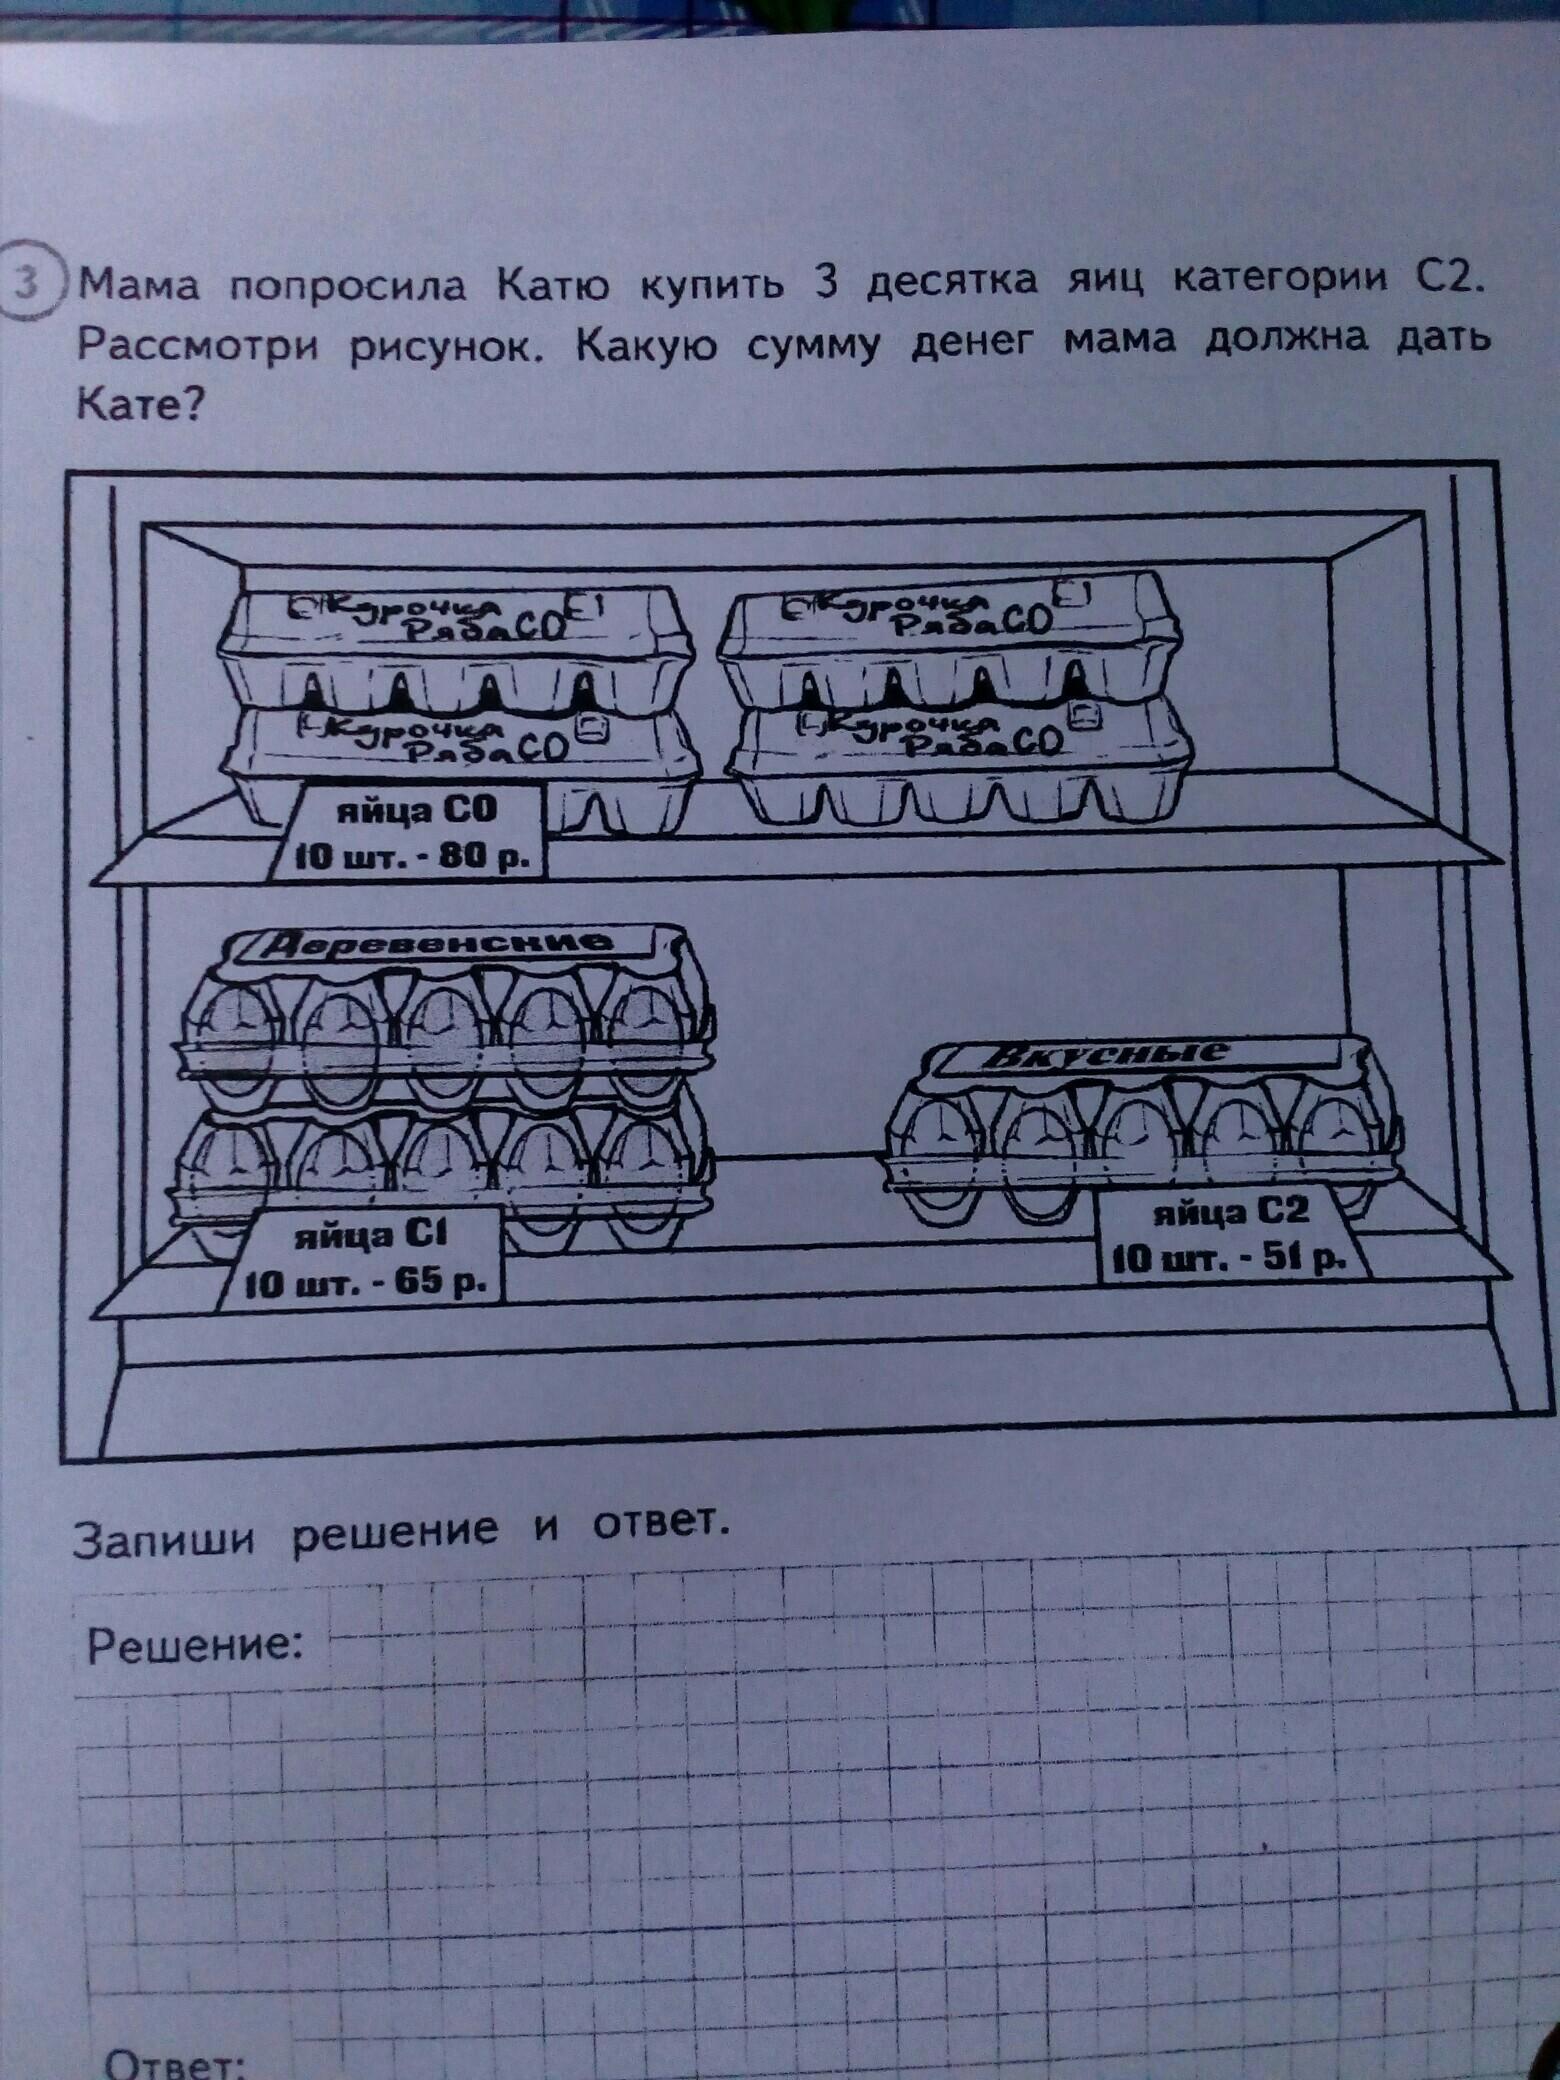 3 Мама попросила Катю купить 3 десятка яиц категории С2.
Рассмотри рисунок. Какую сумму денег мама должна дать
Кате?
Курочка
Ряба С0
Курочка
Ряба С0
Курочка
Ряба С0
Курочка
Ряба С0
яйца С0
10 шт. - 80 р.
Деревенские
Вкусные
яйца С1
10 шт. - 65 р.
яйца С2
10 шт. - 51 р.
Запиши решение и ответ.
Решение:
Ответ: